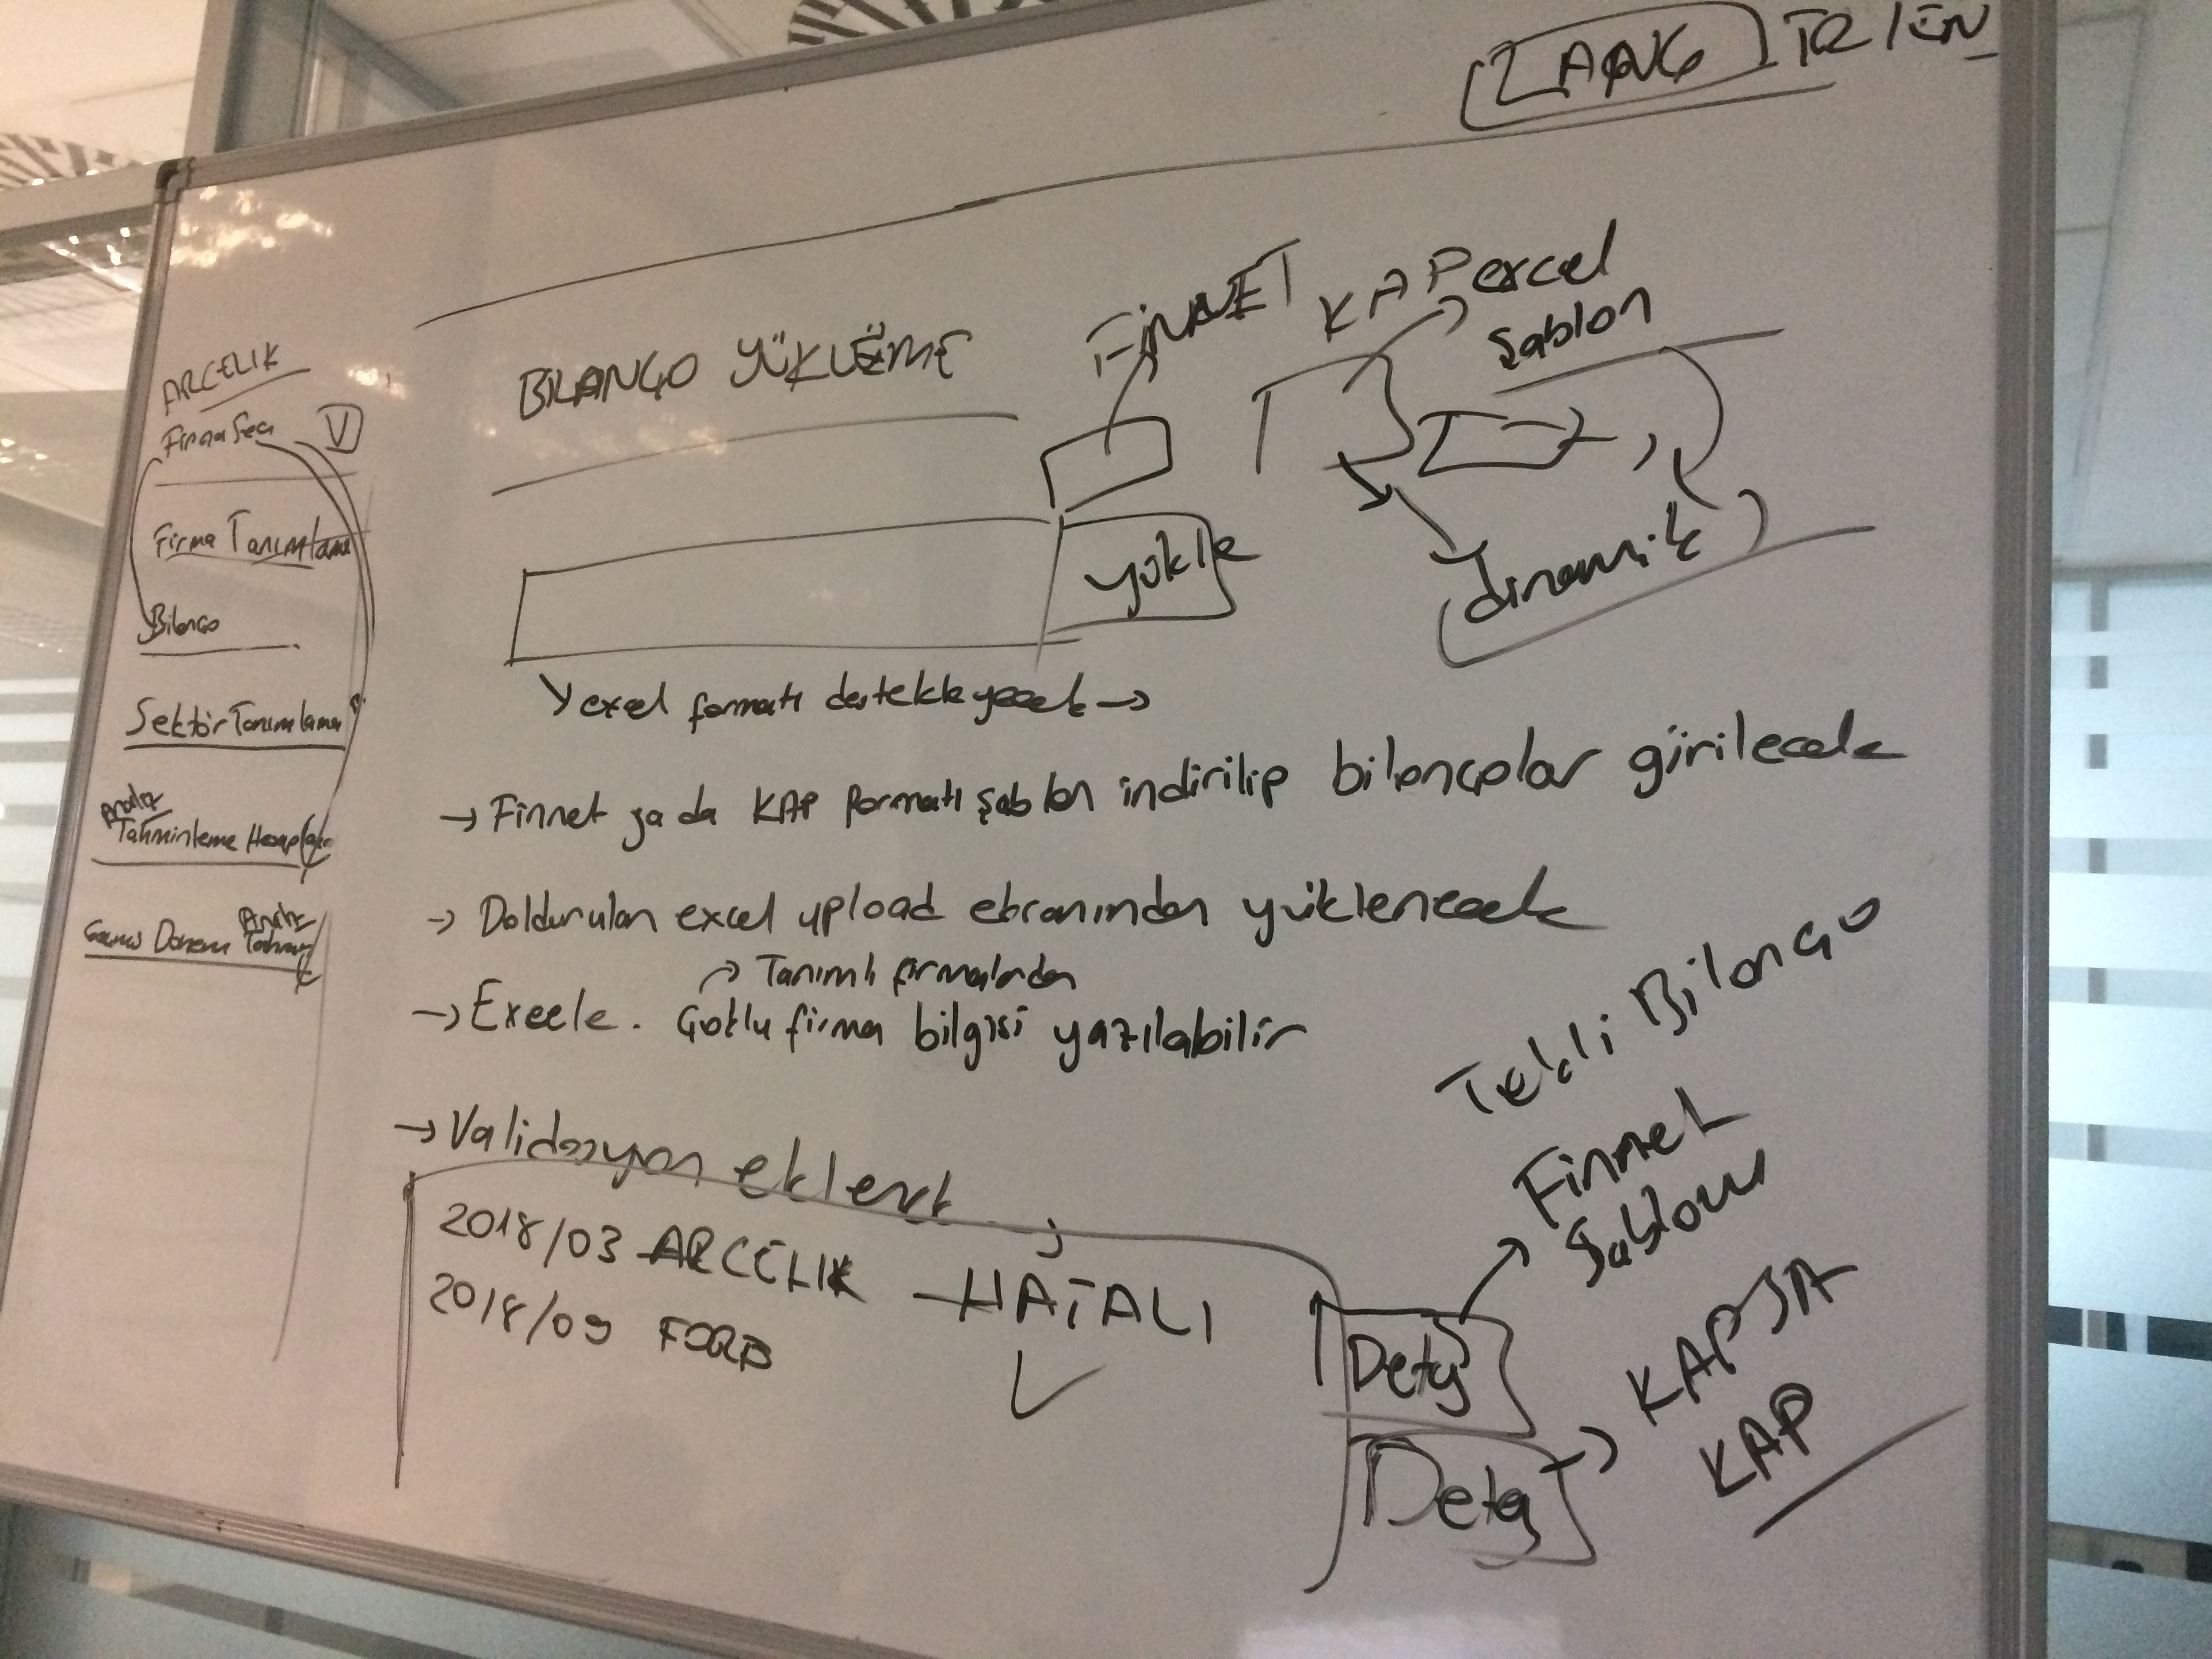 LANG TR / EN
ARCELIK
Firma Sec V
Firma Tanımlama
Bilanço
Sektör Tanımlama
Analiz
Tahminleme Hesapları
Dönem Analiz
BİLANÇO YÜKLEME
FİNNET
KAP excel
şablon
yükle
dinamik
excel formatı destekleyecek →
→ Finnet ya da KAP formatı şablon indirilip bilançolar girilecek
→ Doldurulan excel upload ekranından yüklenecek
→ Tanımlı firmalardan
→ Excele. Çoklu firma bilgisi yazılabilir
→ Validasyon
2018/03 ARCELIK - HATALI
2018/09 FORD
Tekli Bilanço
Finnet
Şablonu
Detay
KAPSA
KAP
Detay